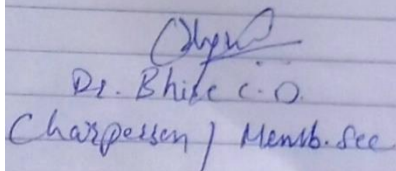 Dr. Bhise C. D.
Charpersen / Memb. Sec